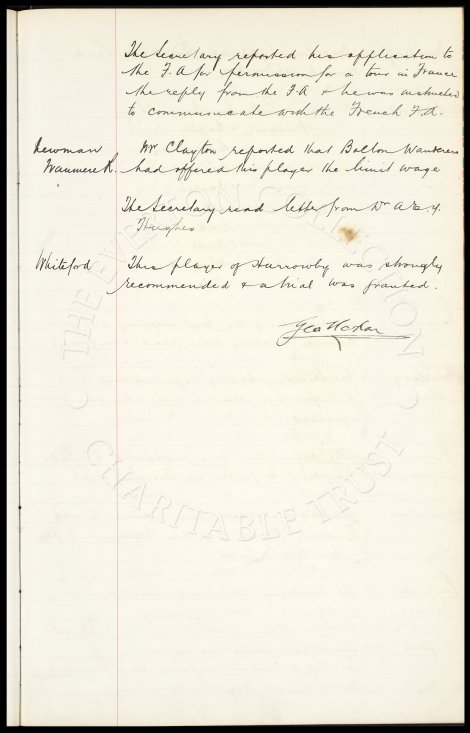 The Secretary reported his application to
the F.A for permission for a tour in France
the reply from the F.A & he was instructed
to communicate with the French F.A.
Newman
Tranmere R.
Mr Clayton reported that Bolton Wanderers
had offered this player the limit wage
The Secretary read letter from Dr A.
Hughes
Whiteford
This player of Harrowby was strongly
recommended & a trial was granted.
Geo Mahon
THE EVERTON COLLECTION
CHARITABLE TRUST